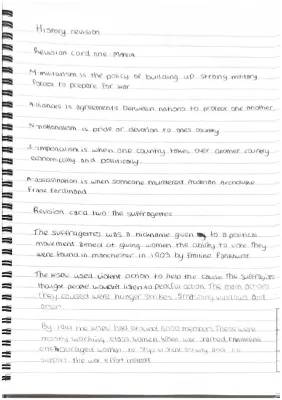 History revision
Revision card one: Mania
M-militarism is the policy of building up strong military
forces to prepare for war
A-lliances is agreements between nations to protect one another
N-nationalism is pride or devotion to ones country
I-imperialism is when one country takes over another country
economically and politically.
A-assassination is when someone murdered Archduke
Franz Ferdinand
Revision card two: the suffragettes
The suffragettes was a nickname given to a political
movement aimed at giving women the ability to vote. They
were found in manchester in 1903 by Emiline Pankhurst
The WSPU used violent action to help the cause. The Suffragettes
thought people wouldn't listen to peaceful action. The main actions
they caused were hunger strikes, smashing windows and
arson.
By 1914 the WSPU had around members. These were
mostly working class women. When war started
encouraged women to stop and to
support the war effort instead